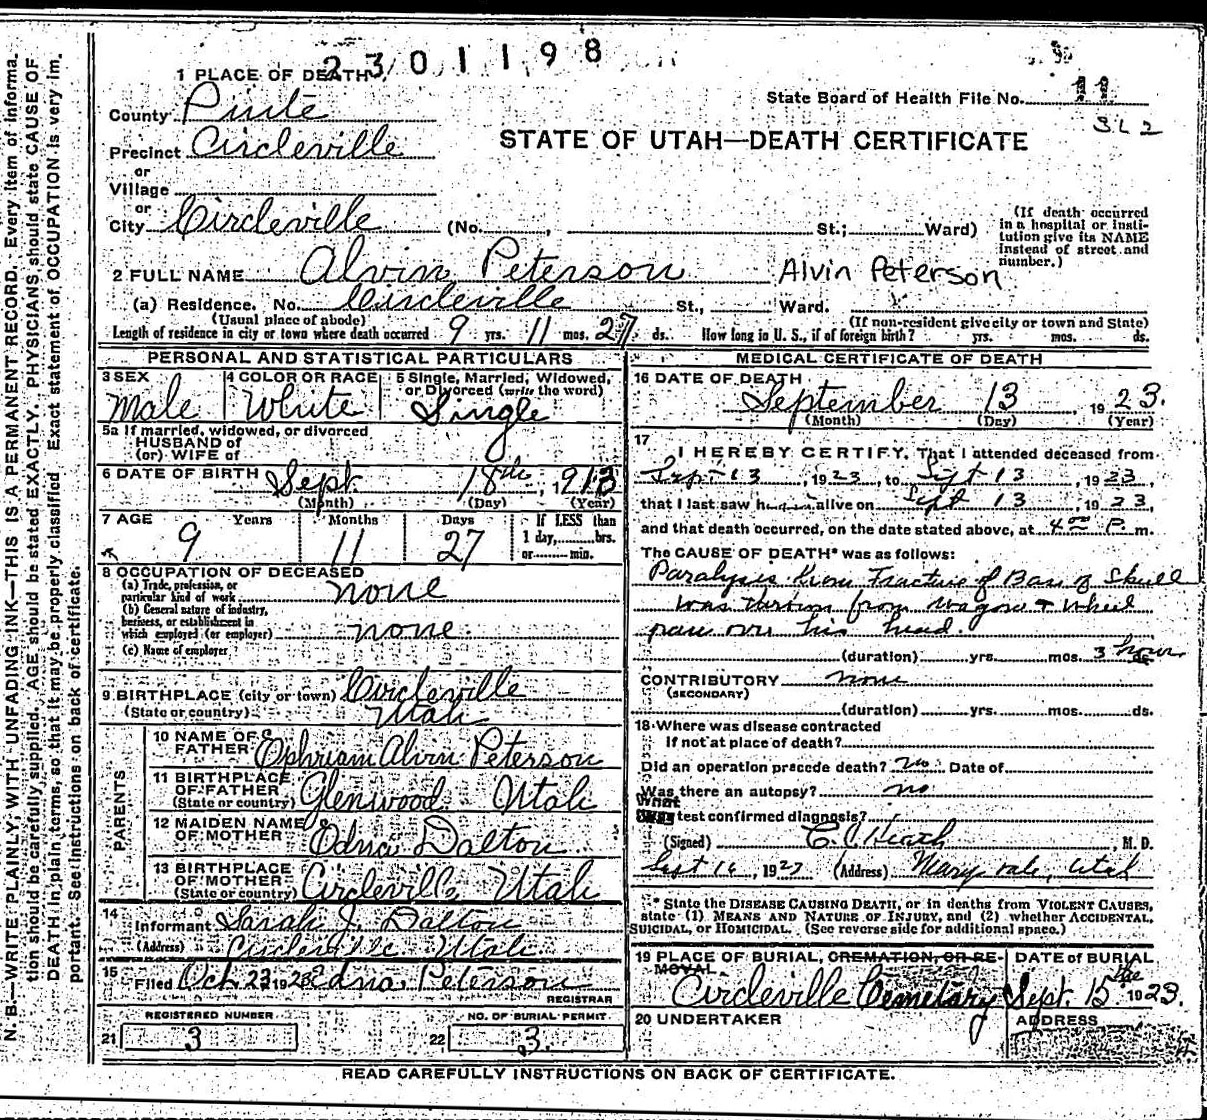 2301198
1 PLACE OF DEATH
State Board of Health File No. 11
County Piute
SL2
STATE OF UTAH—DEATH CERTIFICATE
Precinct Circleville
or
Village
or
City Circleville (No. , St.; Ward)
(If death occurred in a hospital or insti-
tution give its NAME
instead of street and
number.)
2 FULL NAME Alvin Peterson Alvin Peterson
(a) Residence. No. Circleville St., Ward.
(Usual place of abode) (If non-resident give city or town and State)
Length of residence in city or town where death occurred 9 yrs. 11 mos. 27 ds. How long in U. S., if of foreign birth? yrs. mos. ds.
PERSONAL AND STATISTICAL PARTICULARS
3 SEX 4 COLOR OR RACE 5 Single, Married, Widowed,
or Divorced (write the word)
Male White Single
5a If married, widowed, or divorced
HUSBAND of
(or) WIFE of
6 DATE OF BIRTH Sept. 18th, 1913
(Month) (Day) (Year)
7 AGE Years Months Days If LESS than
1 day, hrs.
or min.
9 11 27
8 OCCUPATION OF DECEASED
(a) Trade, profession, or
particular kind of work none
(b) General nature of industry,
business, or establishment in
which employed (or employer) none.
(c) Name of employer
9 BIRTHPLACE (city or town) Circleville
(State or country) Utah
PARENTS
10 NAME OF
FATHER Ephriam Alvin Peterson
11 BIRTHPLACE
OF FATHER
(State or country) Glenwood Utah
12 MAIDEN NAME
OF MOTHER Edna Dalton
13 BIRTHPLACE
OF MOTHER
(State or country) Circleville, Utah
14
Informant Sarah J. Dalton
(Address) Circleville Utah
15
Filed Oct 23 1923 Edna Peterson
REGISTRAR
REGISTERED NUMBER NO. OF BURIAL PERMIT
21 3 22 3.
MEDICAL CERTIFICATE OF DEATH
16 DATE OF DEATH
September 13, 1923.
(Month) (Day) (Year)
17
I HEREBY CERTIFY, That I attended deceased from
Sept 13, 1923, to Sept 13, 1923,
that I last saw him alive on Sept 13, 1923,
and that death occurred, on the date stated above, at 4 P. m.
The CAUSE OF DEATH* was as follows:
Paralysis from Fracture of Base of Skull
was thrown from wagon + wheel
ran over his head.
(duration) yrs. mos. 3 hours ds.
CONTRIBUTORY none
(SECONDARY)
(duration) yrs. mos. ds.
18 Where was disease contracted
If not at place of death?
Did an operation precede death? No Date of
Was there an autopsy? no
What
test confirmed diagnosis?
(Signed) C. C. Heath, M. D.
Sept 16, 1923 (Address) Marysvale, Utah
* State the DISEASE CAUSING DEATH, or in deaths from VIOLENT CAUSES,
state (1) MEANS AND NATURE OF INJURY, and (2) whether ACCIDENTAL,
SUICIDAL, or HOMICIDAL. (See reverse side for additional space.)
19 PLACE OF BURIAL, CREMATION, OR RE-
MOVAL
DATE OF BURIAL
Circleville Cemetary Sept. 15 the 1923.
20 UNDERTAKER ADDRESS
READ CAREFULLY INSTRUCTIONS ON BACK OF CERTIFICATE.
N. B.—WRITE PLAINLY, WITH UNFADING INK—THIS IS A PERMANENT RECORD. Every item of informa-
tion should be carefully supplied. AGE should be stated EXACTLY. PHYSICIANS should state CAUSE OF
DEATH in plain terms, so that it may be properly classified. Exact statement of OCCUPATION is very im-
portant. See instructions on back of certificate.